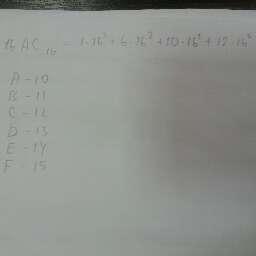 16AC₁₆ = 1·16³+6·16²+10·16¹+12·16⁰
A - 10
B - 11
C - 12
D - 13
E - 14
F - 15